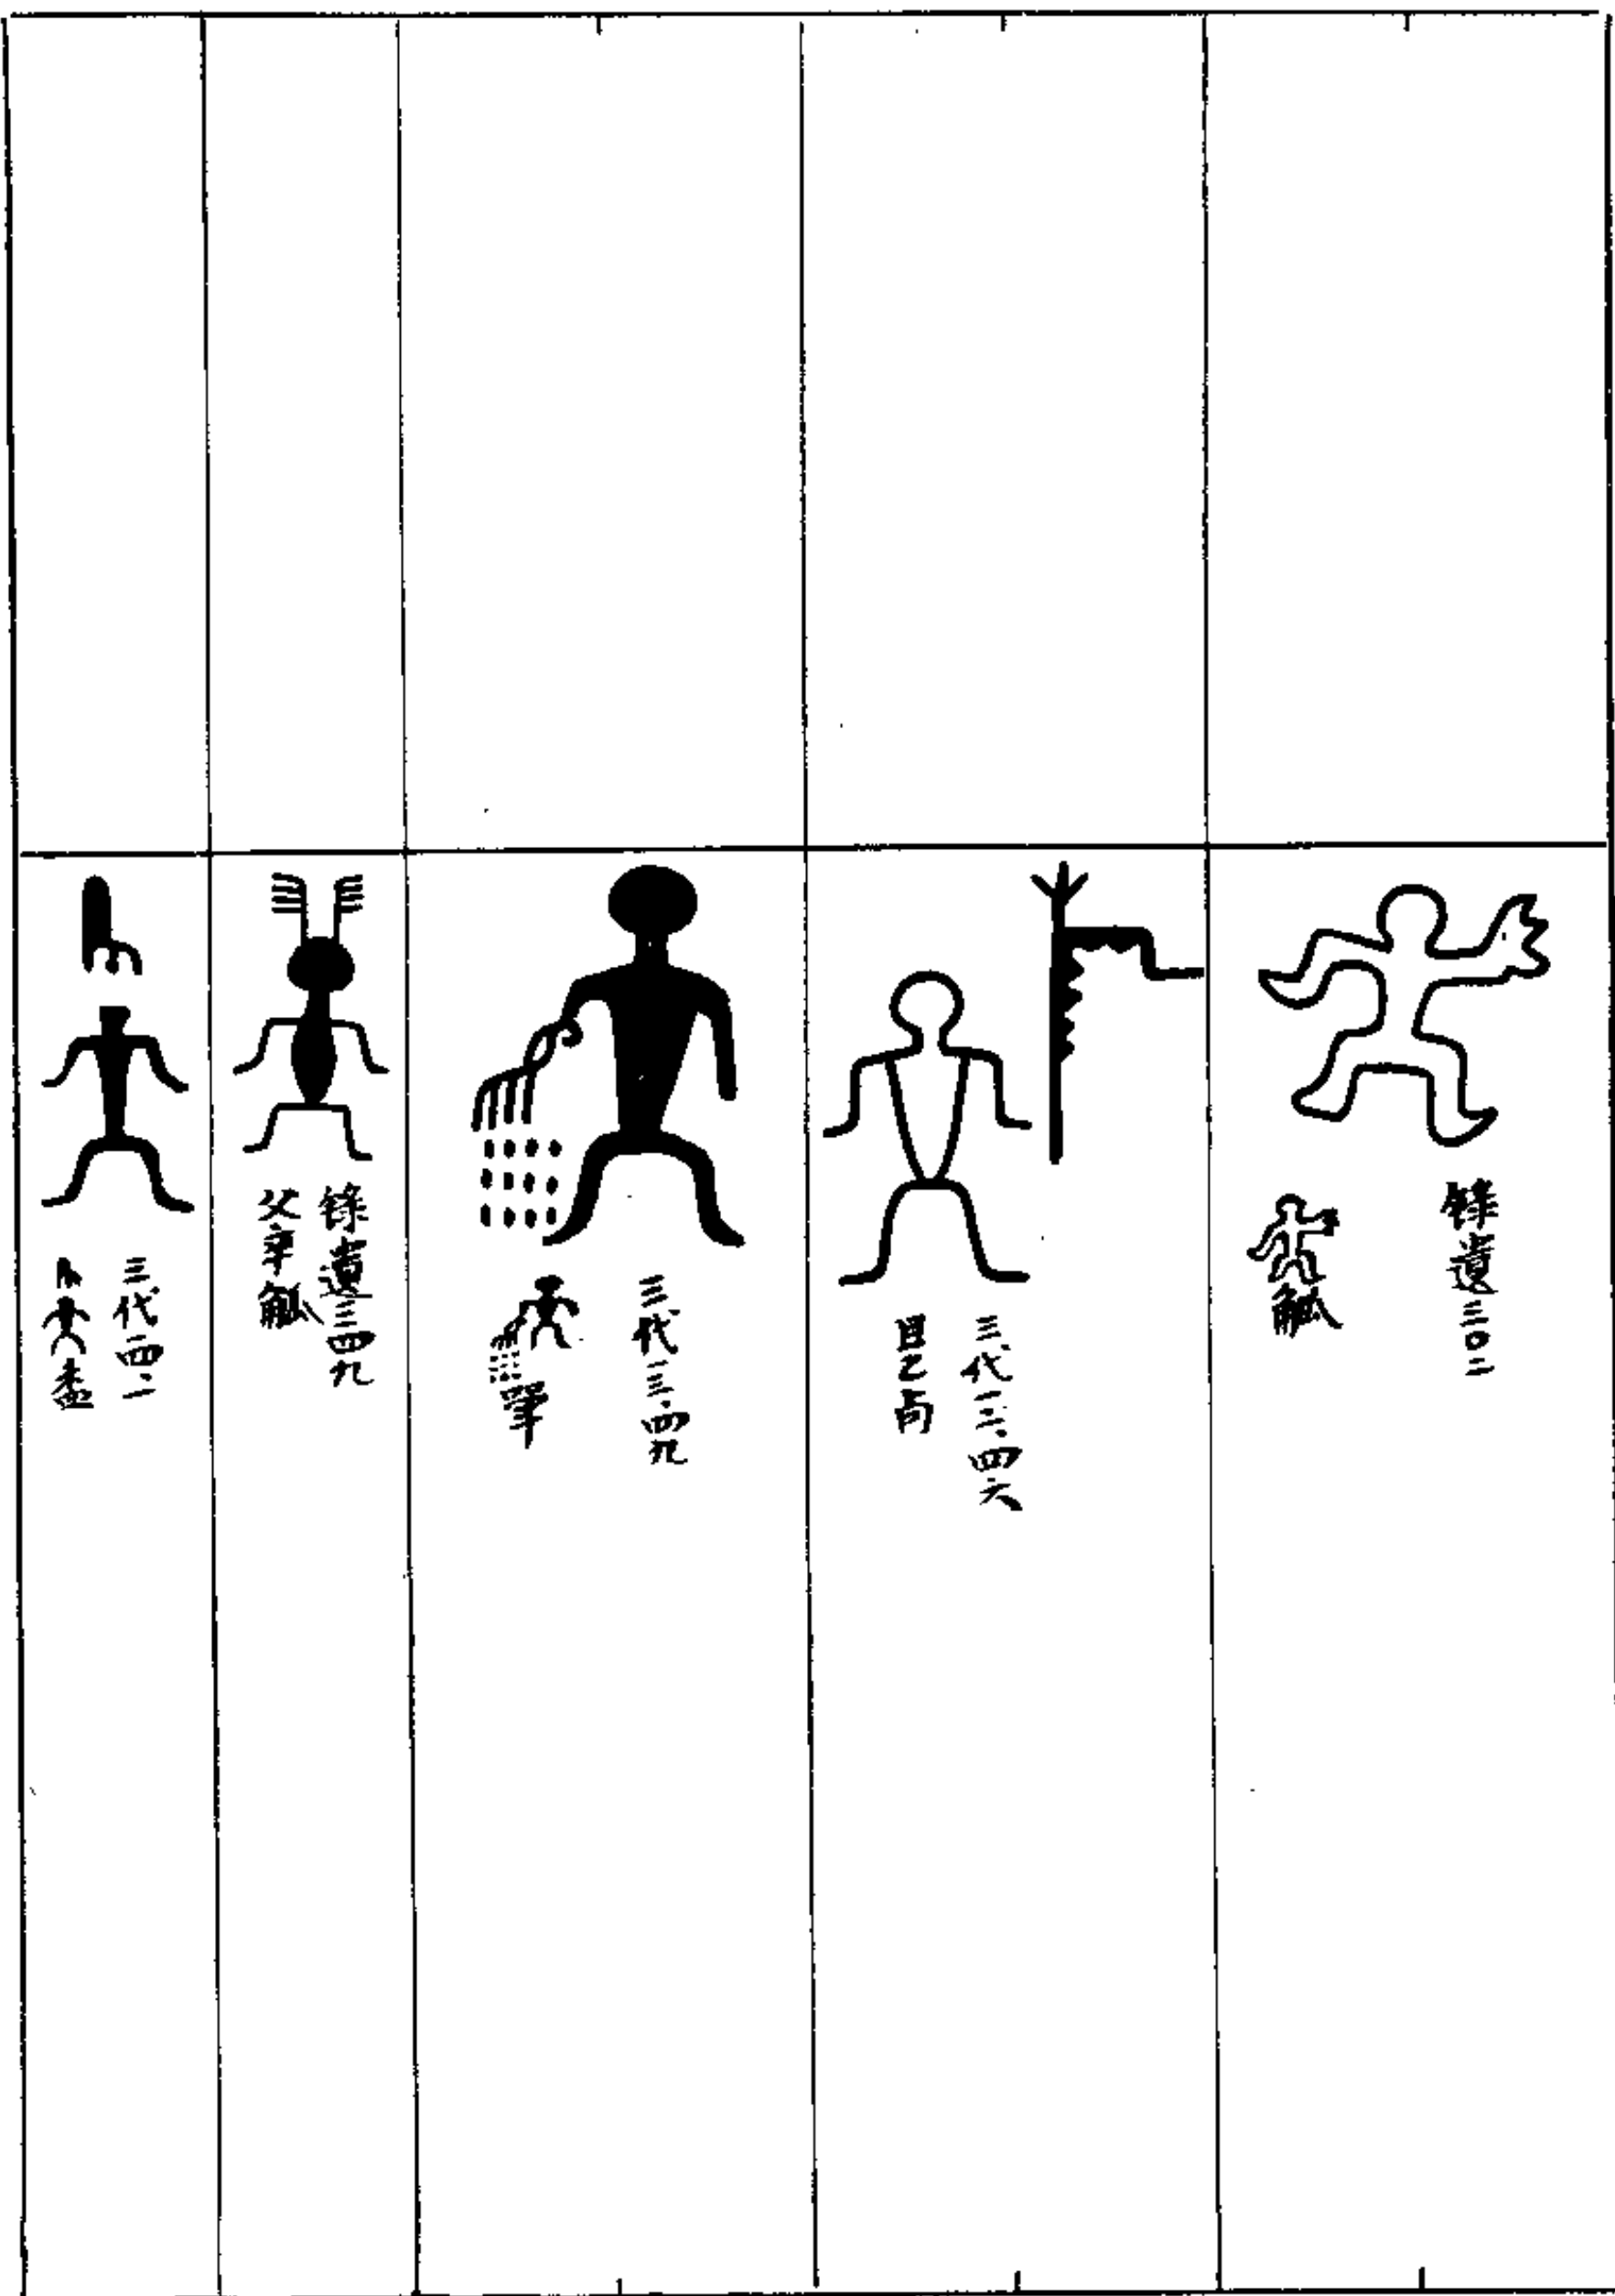 錄遺三〇二
觚
三代一三·四六
且乙卣
三代三·四九
斝
錄遺三四九
父辛觚
三代一四·二
盉